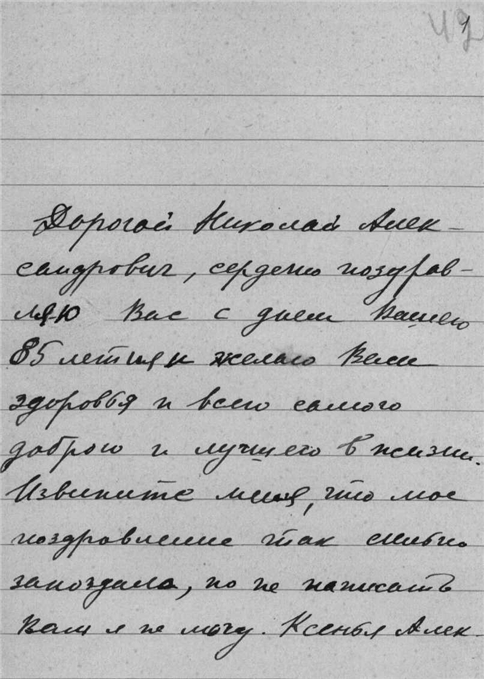 49
1
Дорогой Николай Алек-
сандрович, сердечно поздрав-
ляю Вас с днем Вашего
85 летия и желаю Вам
здоровья и всего самого
доброго и лучшего в жизни.
Извините меня, что мое
поздравление так сильно
запоздало, но не написать
Вам я не могу. Ксенья Алек